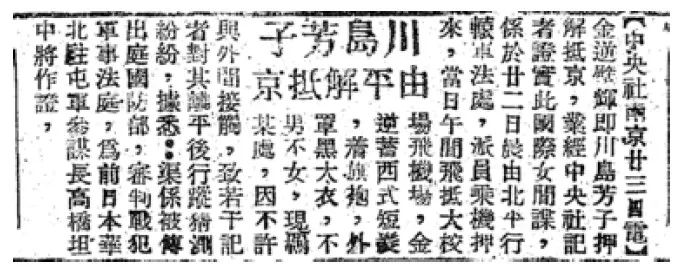 川島芳子
由平解抵京
【中央社南京廿三日電】
金逆璧輝即川島芳子押
解抵京，業經中央社記
者證實此國際女間諜，
係於廿二日晨由北平行
轅軍法處，派員乘機押
來，當日午間飛抵大校
場飛機場，金
逆蓄西式短髮
，着旗袍，外
罩黑大衣，不
男不女，現羈
某處，因不許
與外間接觸，致若干記
者對其離平後行蹤猜測
紛紛，據悉：渠係被傳
出庭國防部，審判戰犯
軍事法庭，為前日本華
北駐屯軍參謀長高橋坦
中將作證，